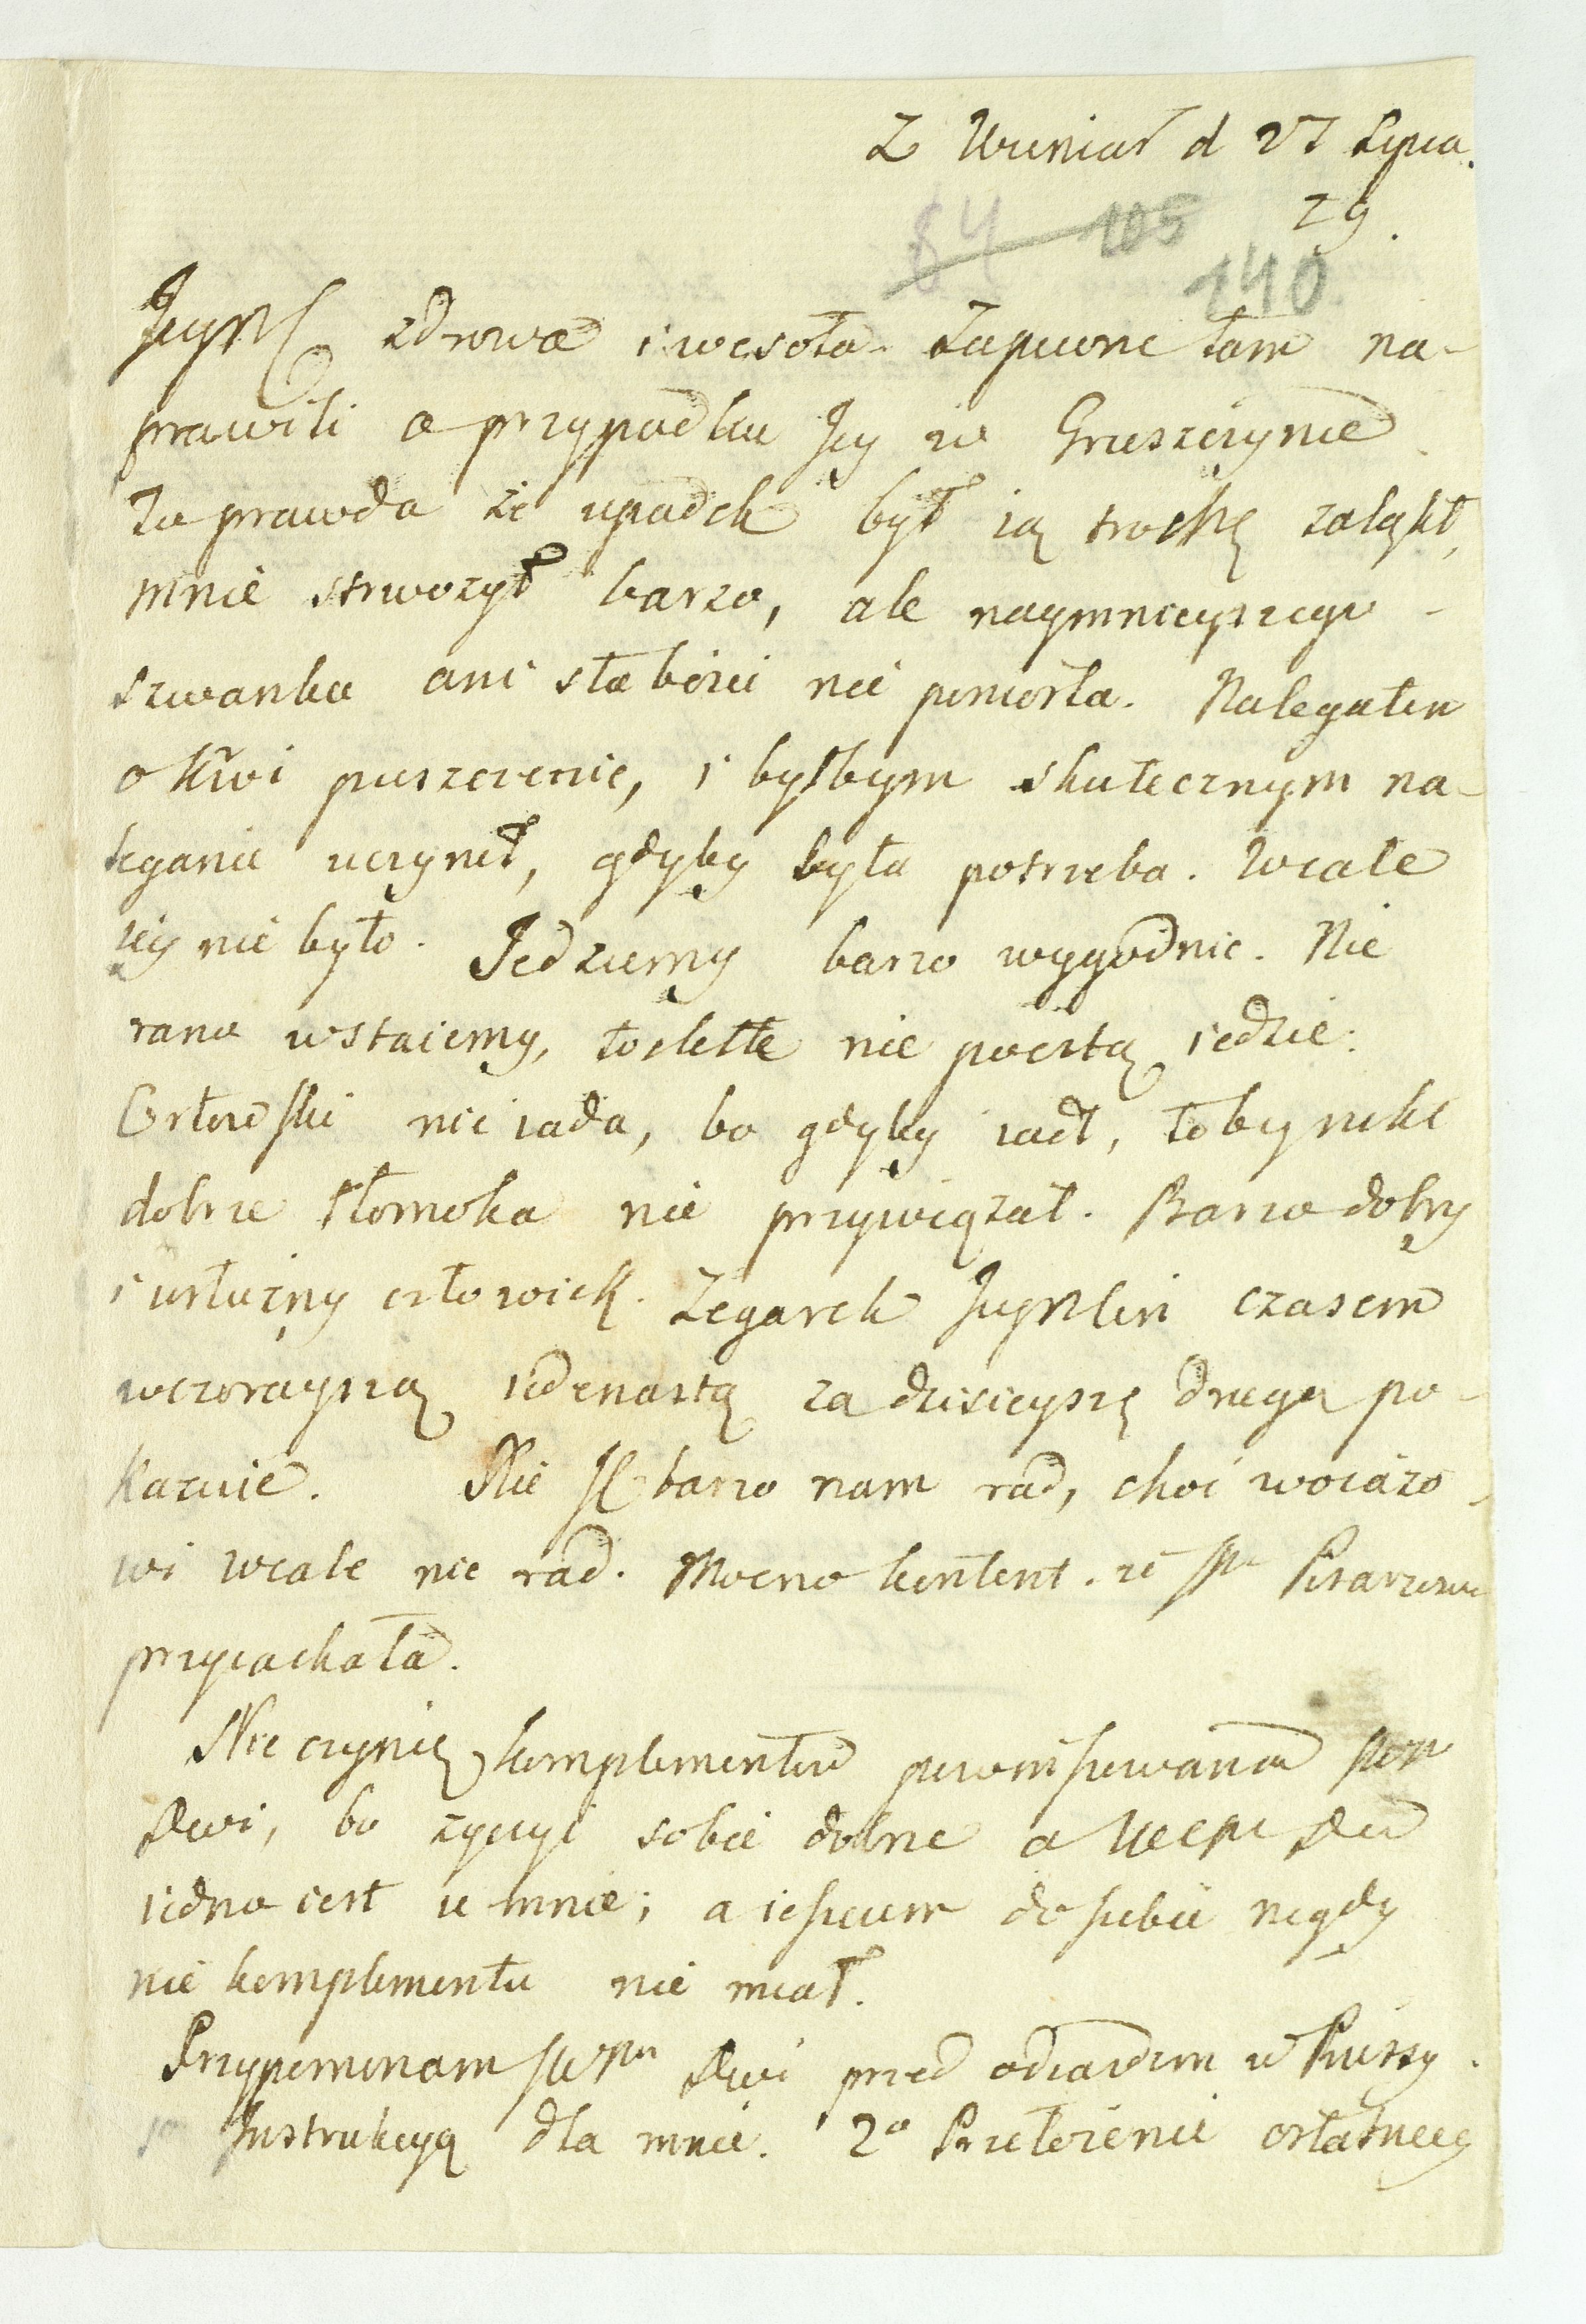 Z d 27 Lipca.
79.
84 105
140
zdrowa i wesoła. Zapewne tam na-
prawili o przypadku Jey w Gruszczynie
Za prawda że upadek był ią trochę zaląkł,
mnie strwożył barzo, ale naymnieyszego
szwanku ani słabości nie poniosła. Nalegałem
o krwi puszczenie, i byłbym skutecznym na-
leganie uczynił, gdyby była potrzeba. Wcale
iey nie było. Jedziemy barzo wygodnie. Nie
rano wstaiemy, toclette nie pocztą iedzie.
Orłowski nie iada, bo gdyby iadł, toby nikt
dobrze tłomoka nie przywiązał. Barzo dobry
i usłużny człowiek. Zegarek czasem
wczorayszą iedenastą za dzisieyszę drugą po-
kazuie. barzo nam rad, choć woiażo-
wi wcale nie rad. Mocno kontent. że
przyiachała.
Nie czynię komplementów powinszowania
bo życzyć sobie dobrze a
iedno iest u mnie; a ieszczem do siebie nigdy
nic komplementu nie miał.
Przypominam przed odiazdem w Prussy.
Instrukcyą dla mnie. 2o Przełożenie ostatniey